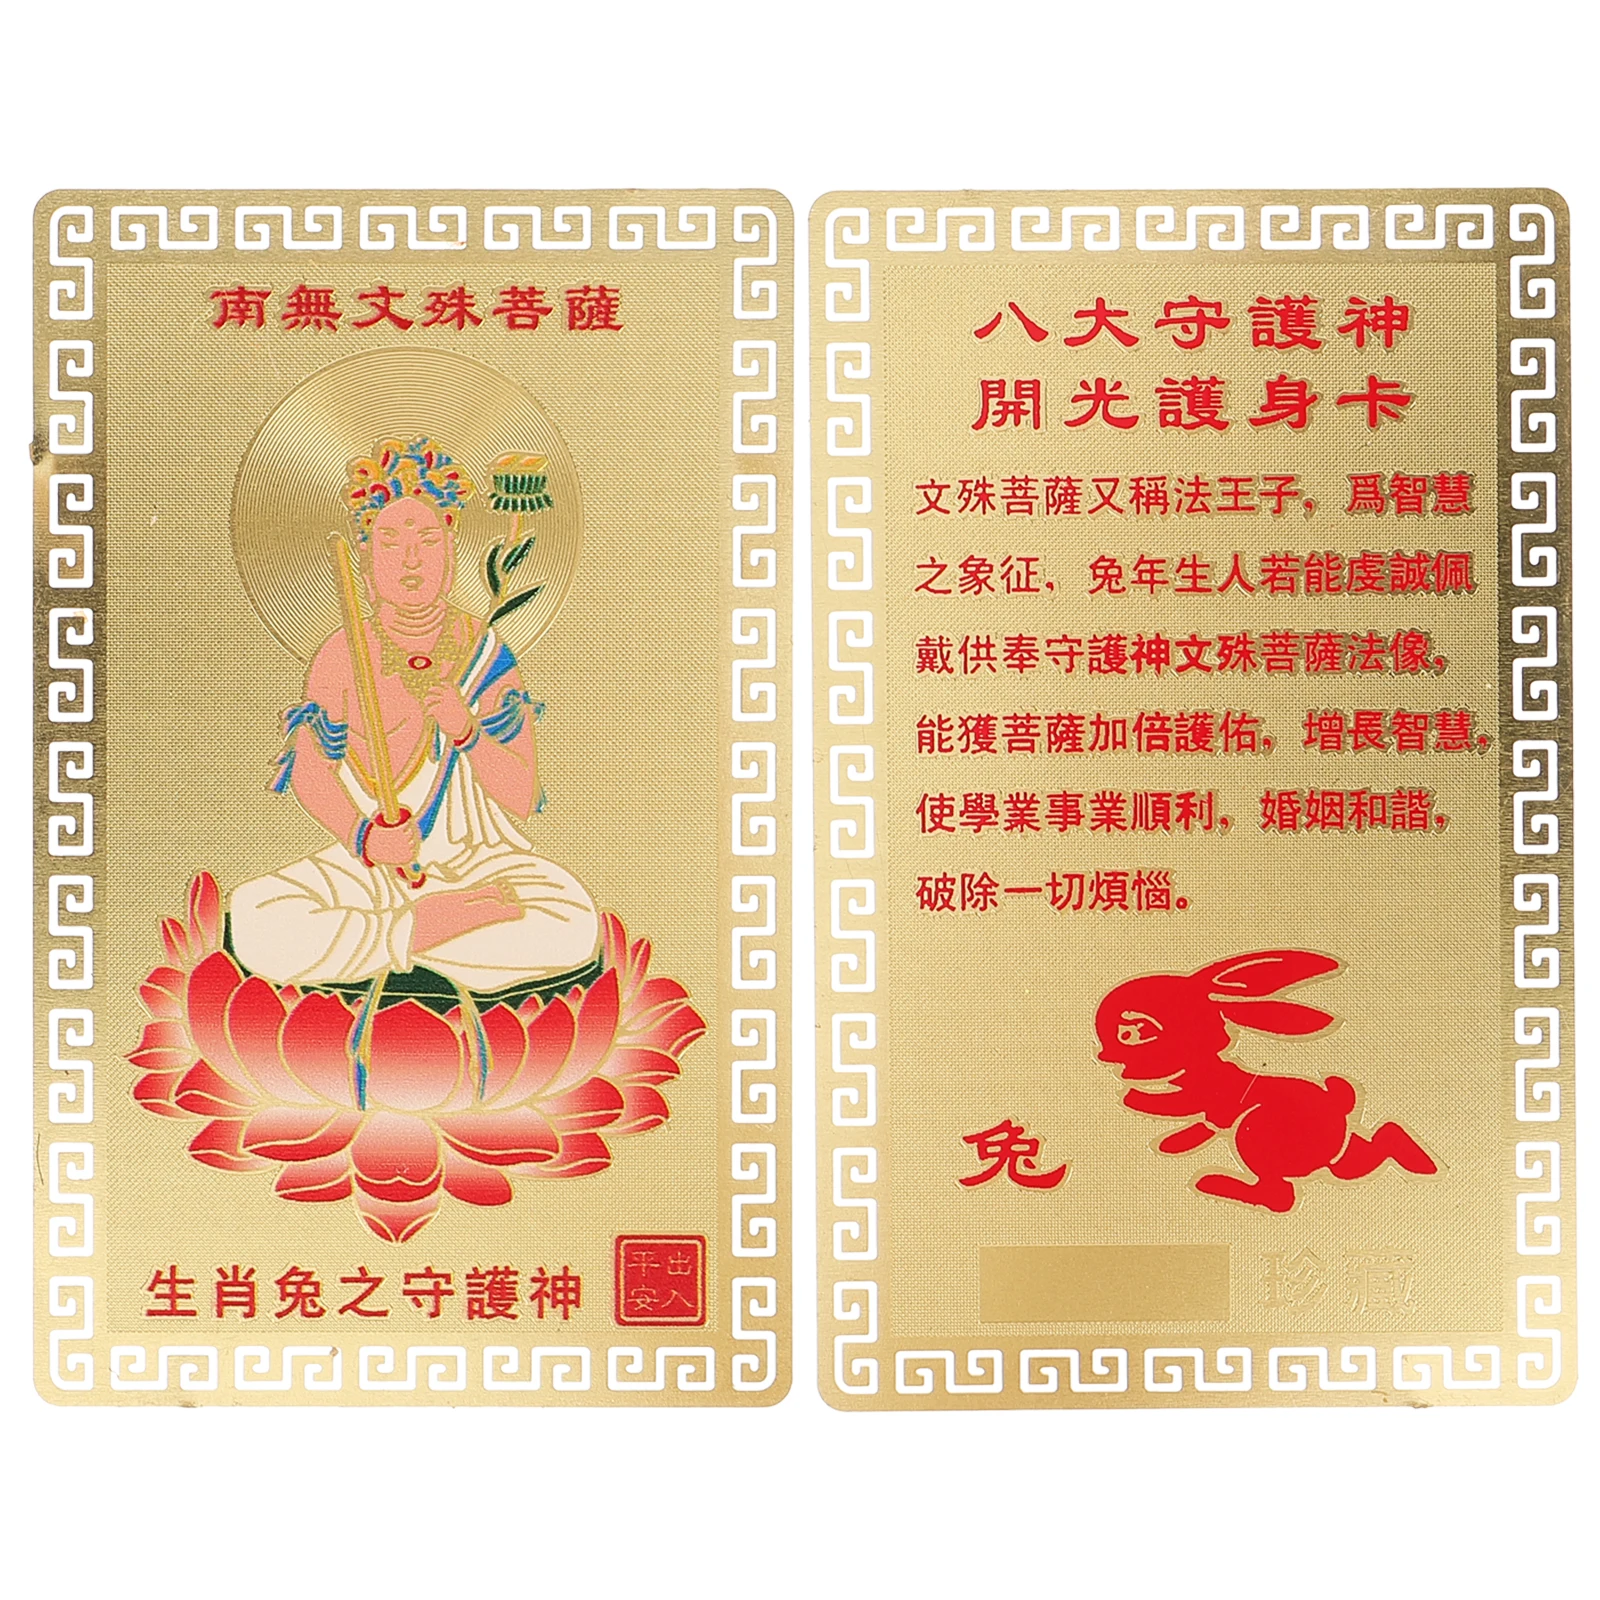 南無文殊菩薩
生肖兔之守護神
出入
平安
八大守護神
開光護身卡
文殊菩薩又稱法王子，爲智慧
之象征，兔年生人若能虔誠佩
戴供奉守護神文殊菩薩法像，
能獲菩薩加倍護佑，增長智慧，
使學業事業順利，婚姻和諧，
破除一切煩惱。
兔
珍藏